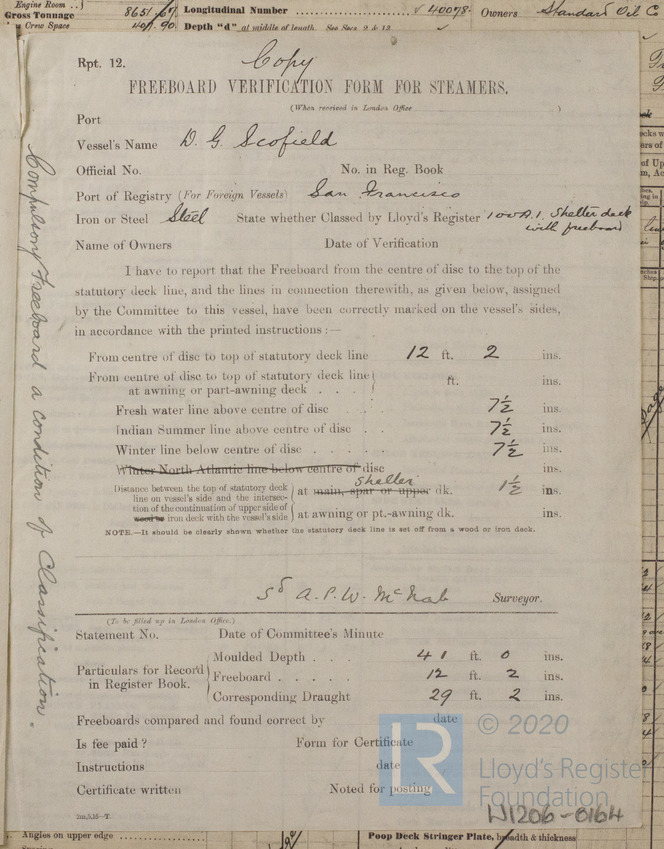 Engine Room
Gross Tonnage 8651.67
Crew Space 401.90
Longitudinal Number 40078
Owners Standard Oil Co
Depth "d" at middle of length. See Secs. 9 & 13.
Rpt. 12. Copy
FREEBOARD VERIFICATION FORM FOR STEAMERS.
(When received in London Office )
Port
Vessel's Name D. G. Scofield
Official No. No. in Reg. Book
Port of Registry (For Foreign Vessels) San Francisco
Iron or Steel Steel State whether Classed by Lloyd's Register 100A.1. Shelter deck
with freeboard
Name of Owners Date of Verification
I have to report that the Freeboard from the centre of disc to the top of the
statutory deck line, and the lines in connection therewith, as given below, assigned
by the Committee to this vessel, have been correctly marked on the vessel's sides,
in accordance with the printed instructions :—
From centre of disc to top of statutory deck line 12 ft. 2 ins.
From centre of disc to top of statutory deck line
at awning or part-awning deck . . . ft. ins.
Fresh water line above centre of disc . . 7½ ins.
Indian Summer line above centre of disc . . 7½ ins.
Winter line below centre of disc . . . . . 7½ ins.
Winter North Atlantic line below centre of disc ins.
Shelter
Distance between the top of statutory deck
line on vessel's side and the intersec-
tion of the continuation of upper side of
iron deck with the vessel's side
at main, spar or upper dk. 1½ ins.
at awning or pt.-awning dk. ins.
NOTE.—It should be clearly shown whether the statutory deck line is set off from a wood or iron deck.
Sd A. P. W. McNab Surveyor.
(To be filled up in London Office.)
Statement No. Date of Committee's Minute
Particulars for Record
in Register Book.
Moulded Depth . . . 41 ft. 0 ins.
Freeboard . . . . . 12 ft. 2 ins.
Corresponding Draught 29 ft. 2 ins.
Freeboards compared and found correct by date
Is fee paid ? Form for Certificate
Instructions date
Certificate written Noted for posting
2m,5,15—T.
Compulsory Freeboard a condition of Classification.
LR © 2020
Lloyd's Register
Foundation
W1206-0164
Angles on upper edge
Poop Deck Stringer Plate, breadth & thickness